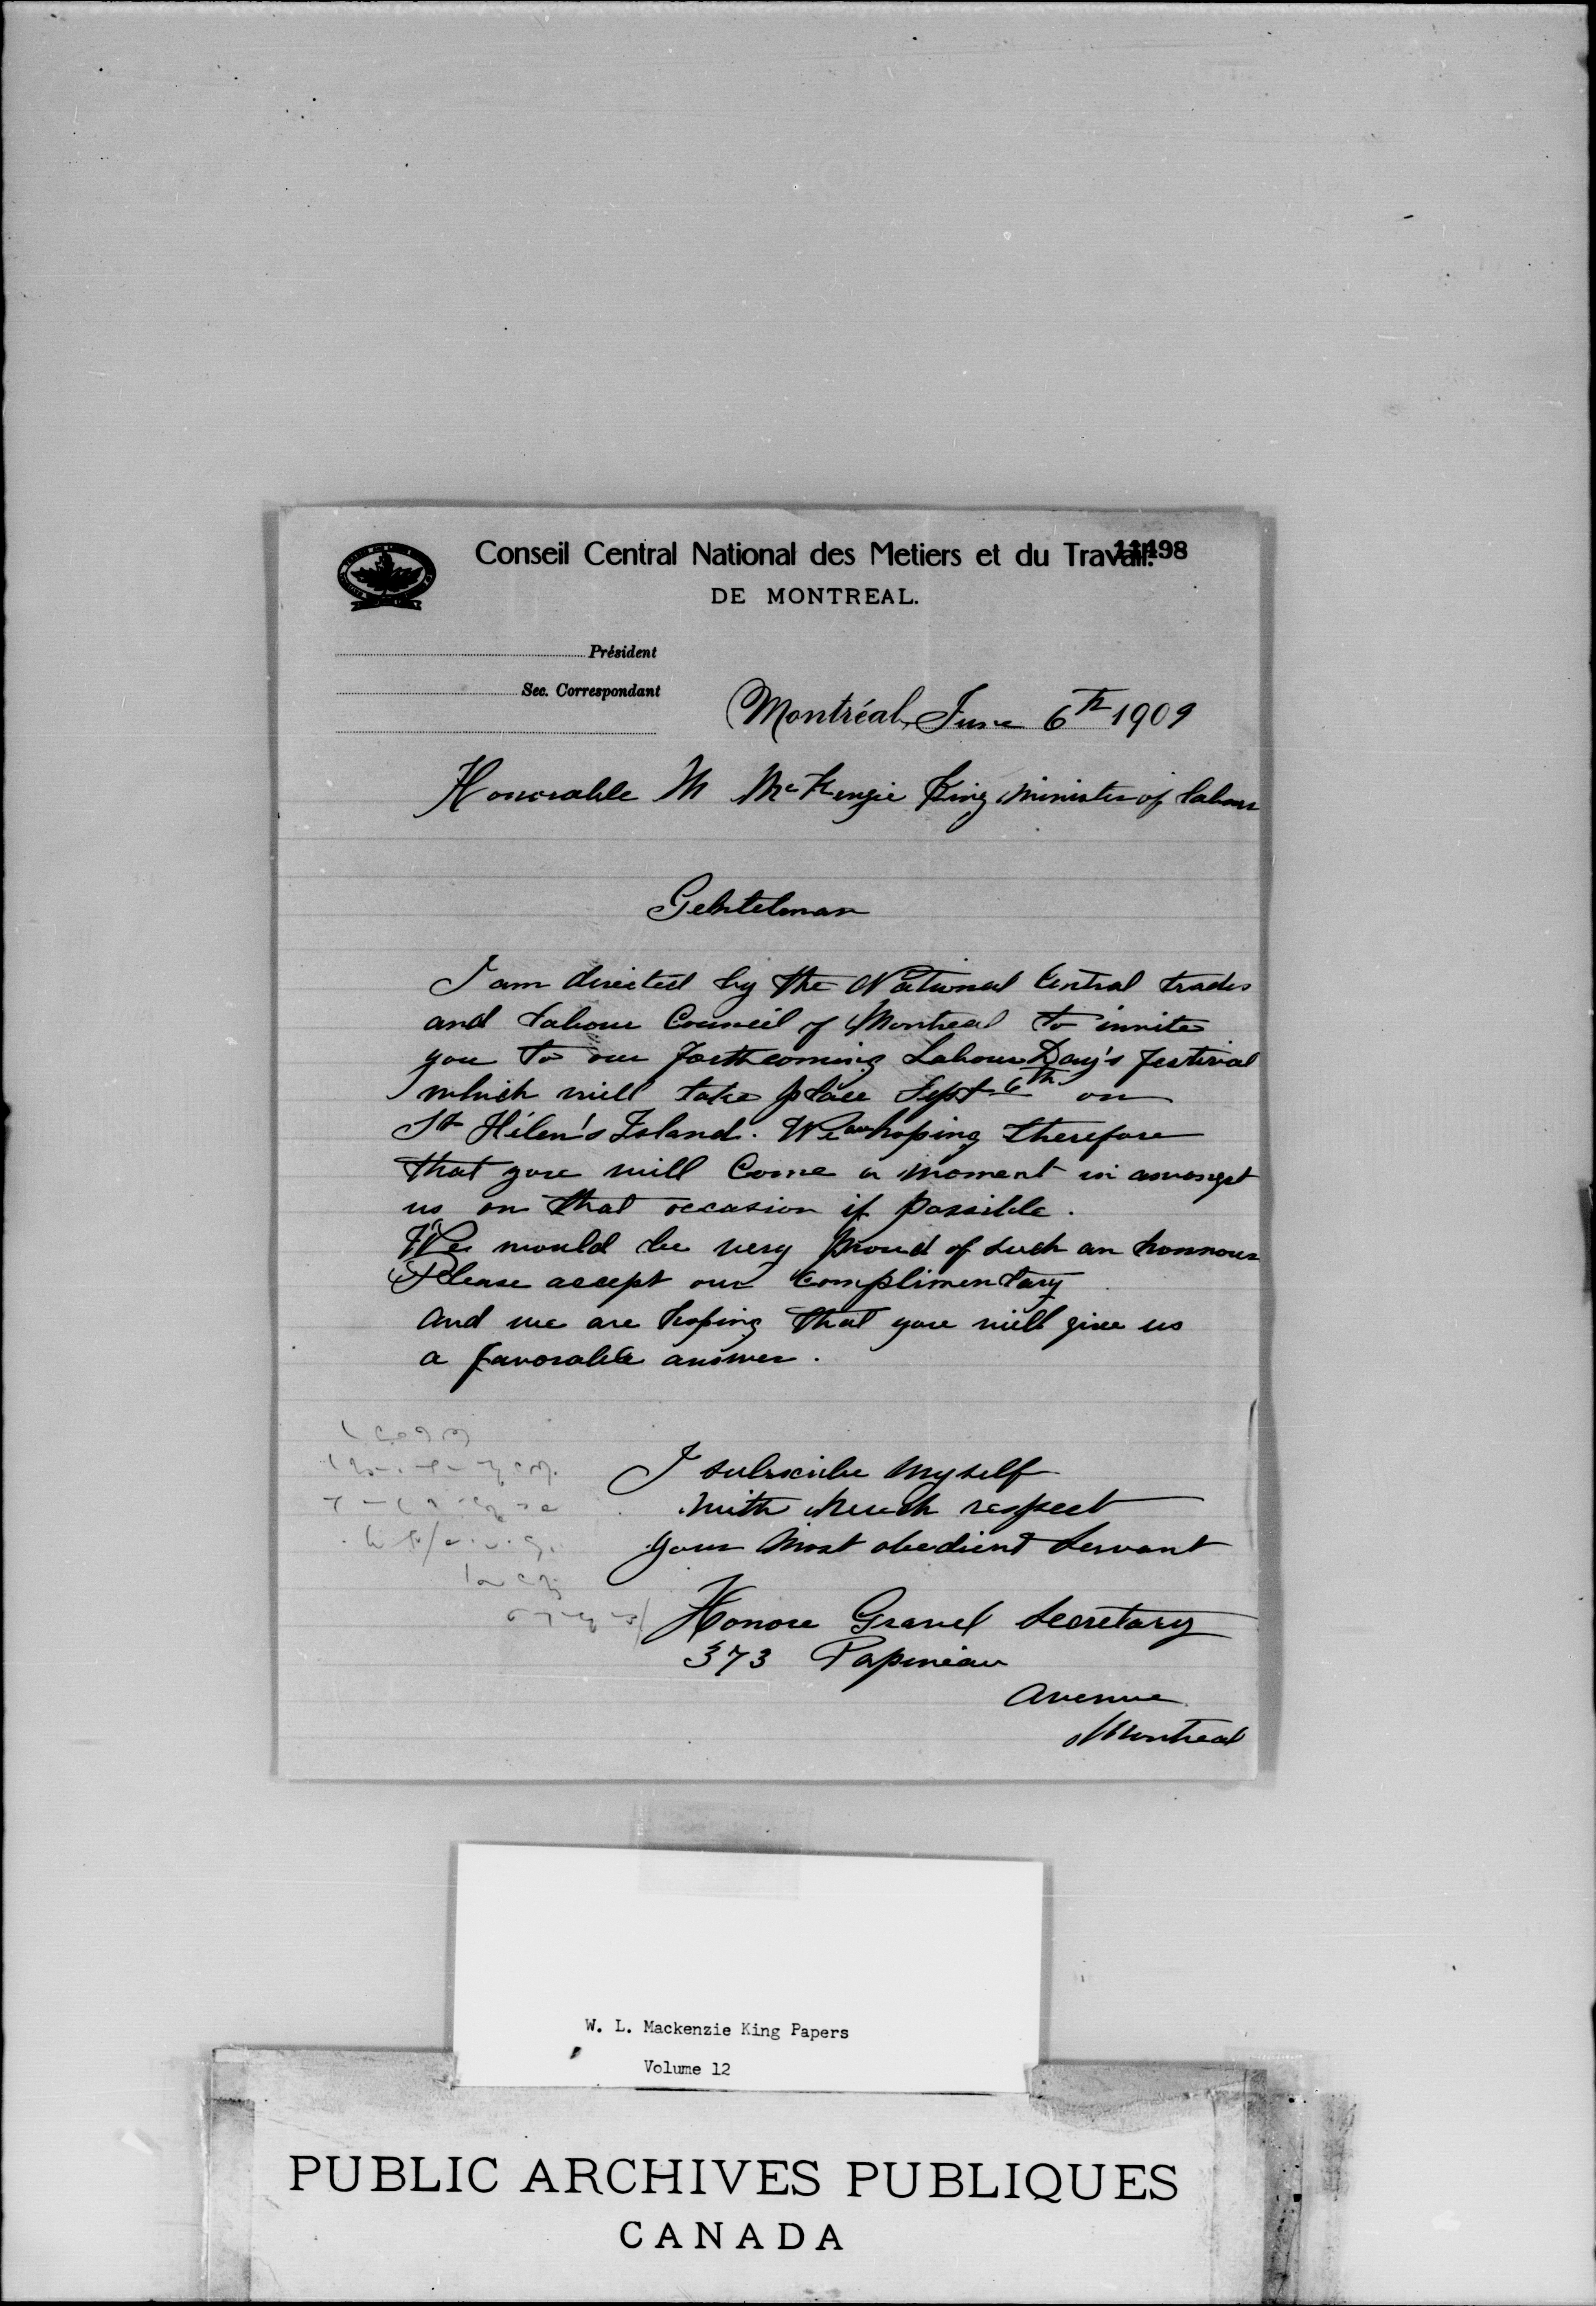 Conseil Central National des Metiers et du Travail.
DE MONTREAL.
Président
Sec. Correspondant
Montréal, June 6th 1909
Honorable M McKenzie King Minister of labour
Gehtelman
I am directed by the National Central trades
and Labour Council of Montreal to invite
you to our forthcoming Labour Day's festival
which will take place Sept 6th on
St Hélen's Island. We are hoping therefore
that you will Come a moment in amongst
us on that occasion if possible.
We would be very proud of such an honnour
Please accept our Complimentary
and we are hoping that you will give us
a favorable answer.
I subscribe Myself
with Much respect
your Most obedient Servant
Honore Gravel Secretary
373 Papineau
Avenue
Montreal
W. L. Mackenzie King Papers
Volume 12
PUBLIC ARCHIVES PUBLIQUES
CANADA